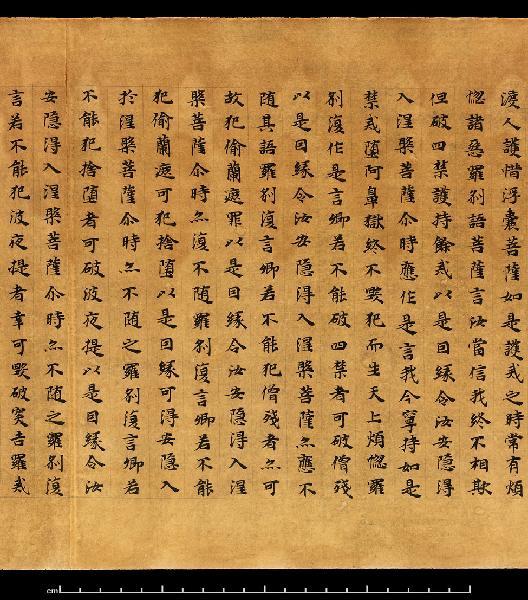 渡人護惜浮囊菩薩如是護戒之時常有煩
惱諸惡羅剎語菩薩言汝當信我終不相欺
但破四禁護持餘戒以是因緣令汝安隱得
入涅槃菩薩尒時應作是言我今寧持如是
禁戒墮阿鼻獄終不毀犯而生天上煩惱羅
剎復作是言卿若不能破四禁者可破僧殘
以是因緣令汝安隱得入涅槃菩薩亦應不
随其語羅剎復言卿若不能犯僧殘者亦可
故犯偷蘭遮罪以是因緣令汝安隱得入涅
槃菩薩尒時亦復不随羅剎復言卿若不能
犯偷蘭遮可犯捨墮以是因緣可得安隱入
於涅槃菩薩尒時亦不随之羅剎復言卿若
不能犯捨墮者可破波夜提以是因緣令汝
安隱得入涅槃菩薩尒時亦不随之羅剎復
言若不能犯波夜提者幸可毀破突吉羅戒
cm